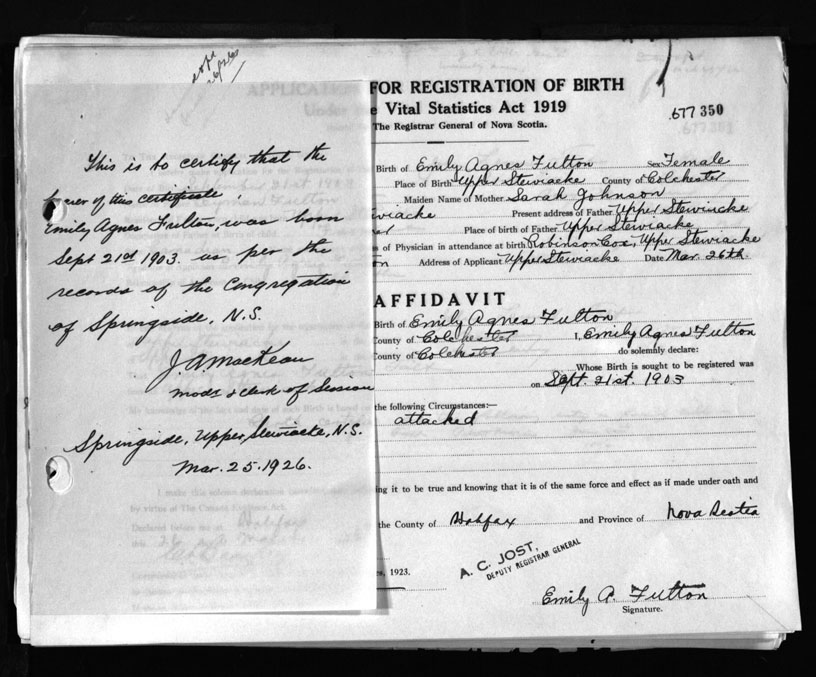 This is to certify that the
bearer of this certificate
Emily Agnes Fulton, was born
Sept 21st 1903. as per the
records of the Congregation
of Springside, N.S.
J. A. MacKean
Modr & clerk of Session
Springside, Upper Stewiacke, N.S.
Mar. 25. 1926.
APPLICATION FOR REGISTRATION OF BIRTH
Vital Statistics Act 1919
The Registrar General of Nova Scotia.
677 350
Birth of Emily Agnes Fulton Sex Female
Place of Birth Upper Stewiacke County of Colchester
Maiden Name of Mother Sarah Johnson
Present address of Father Upper Stewiacke
Place of birth of Father Upper Stewiacke
of Physician in attendance at birth Robinson Cox, Upper Stewiacke
Address of Applicant Upper Stewiacke Date Mar. 26th.
AFFIDAVIT
Birth of Emily Agnes Fulton
County of Colchester I, Emily Agnes Fulton
County of Colchester do solemnly declare:
Whose Birth is sought to be registered was
on Sept. 21st. 1903
the following Circumstances:—
attached
ing it to be true and knowing that it is of the same force and effect as if made under oath and
the County of Halifax and Province of Nova Scotia
1923.
A. C. JOST,
DEPUTY REGISTRAR GENERAL
Emily A. Fulton
Signature.